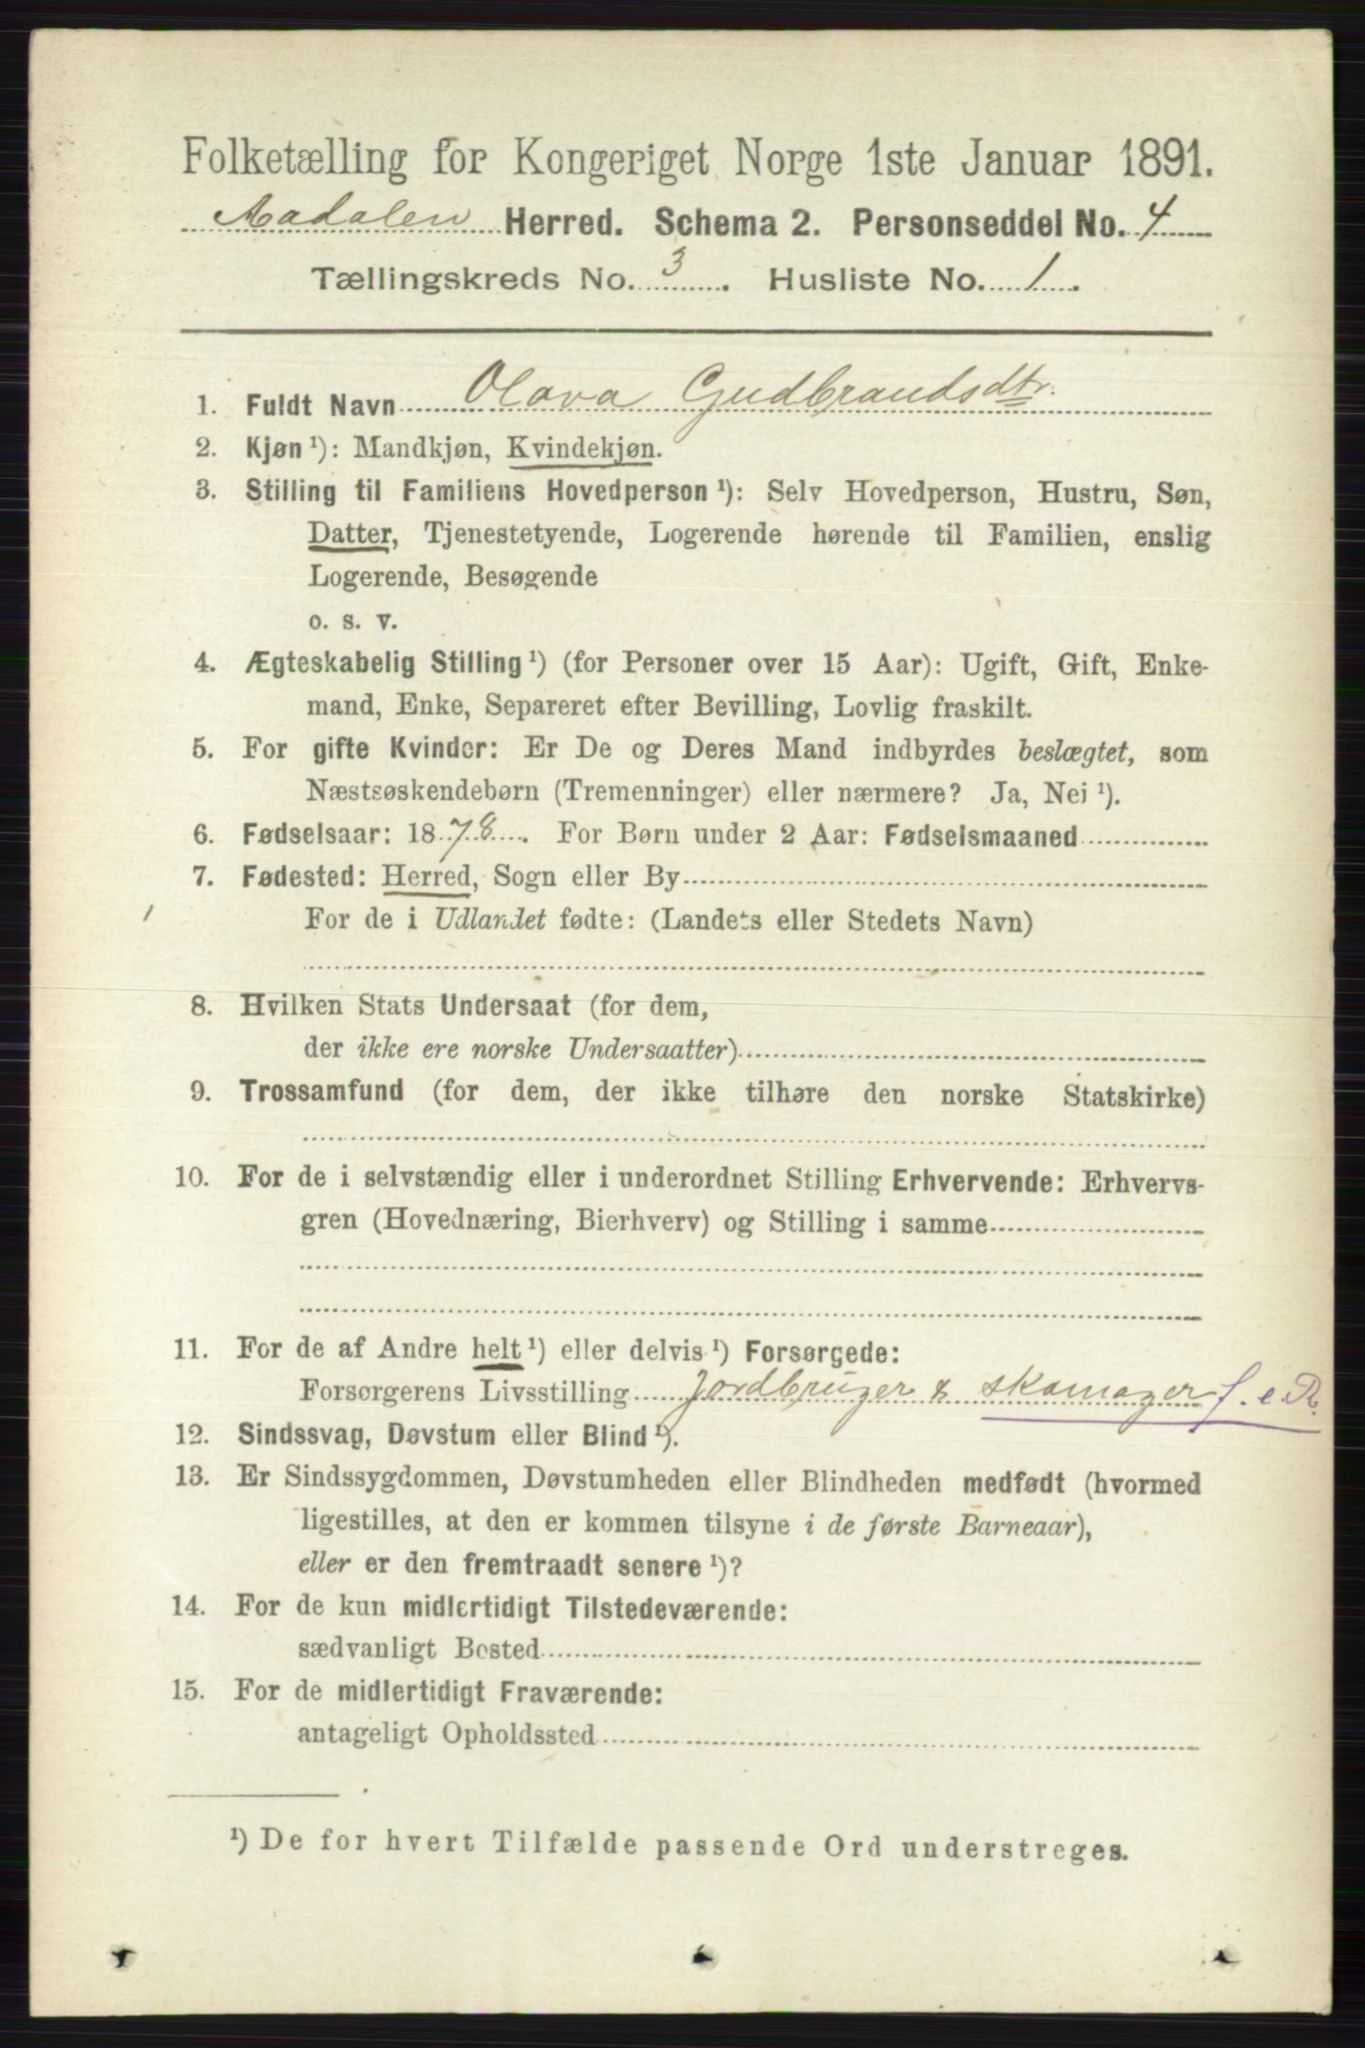 Folketælling for Kongeriget Norge 1ste Januar 1891.
Aadalen Herred. Schema 2. Personseddel No. 4
Tællingskreds No. 3. Husliste No. 1.
1. Fuldt Navn Olava Gudbrandsdtr.
2. Kjøn ¹): Mandkjøn, Kvindekjøn.
3. Stilling til Familiens Hovedperson ¹): Selv Hovedperson, Hustru, Søn,
Datter, Tjenestetyende, Logerende hørende til Familien, enslig
Logerende, Besøgende
o. s. v.
4. Ægteskabelig Stilling ¹) (for Personer over 15 Aar): Ugift, Gift, Enke-
mand, Enke, Separeret efter Bevilling, Lovlig fraskilt.
5. For gifte Kvinder: Er De og Deres Mand indbyrdes beslægtet, som
Næstsøskendebørn (Tremenninger) eller nærmere? Ja, Nei ¹).
6. Fødselsaar: 1878. For Børn under 2 Aar: Fødselsmaaned
7. Fødested: Herred, Sogn eller By
For de i Udlandet fødte: (Landets eller Stedets Navn)
8. Hvilken Stats Undersaat (for dem,
der ikke ere norske Undersaatter)
9. Trossamfund (for dem, der ikke tilhøre den norske Statskirke)
10. For de i selvstændig eller i underordnet Stilling Erhvervende: Erhvervs-
gren (Hovednæring, Bierhverv) og Stilling i samme
11. For de af Andre helt ¹) eller delvis ¹) Forsørgede:
Forsørgerens Livsstilling Jordbruger & skomager f. e. R.
12. Sindssvag, Døvstum eller Blind ¹).
13. Er Sindssygdommen, Døvstumheden eller Blindheden medfødt (hvormed
ligestilles, at den er kommen tilsyne i de første Barneaar),
eller er den fremtraadt senere ¹)?
14. For de kun midlertidigt Tilstedeværende:
sædvanligt Bosted
15. For de midlertidigt Fraværende:
antageligt Opholdssted
¹) De for hvert Tilfælde passende Ord understreges.